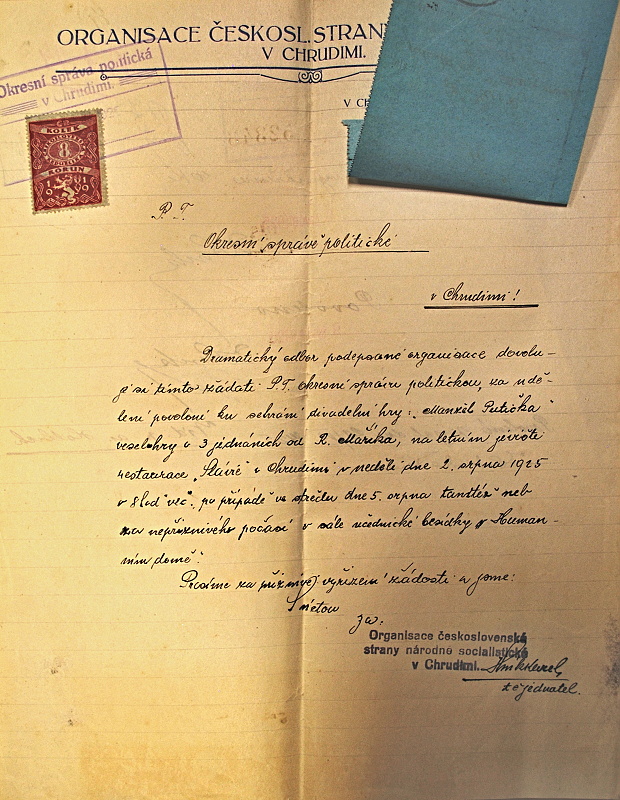 ORGANISACE ČESKOSL. STRANY
V CHRUDIMI.
Okresní správa politická
v Chrudimi.
KOLEK
8
KORUN
1919
V CH
P. T.
Okresní správě politické
v Chrudimi!
Dramatický odbor podepsané organisace dovolu-
je si tímto žádati P.T. okresní správu politickou, za udě-
lení povolení ku sehrání divadelní hry: „Manžel Putička"
veselohry o 3 jednáních od R. Maříka, na letním jevišti
restaurace „Slávie" v Chrudimi v neděli dne 2. srpna 1925
v 8 hod več. po případě ve středu dne 5. srpna tamtéž neb
za nepříznivého počasí v sále učednické besídky v Human-
ním domě.
Prosíme za příznivé vyřízení žádosti a jsme:
S úctou
za:
Organisace československé
strany národně socialistické
v Chrudimi.
t.č. jednatel.